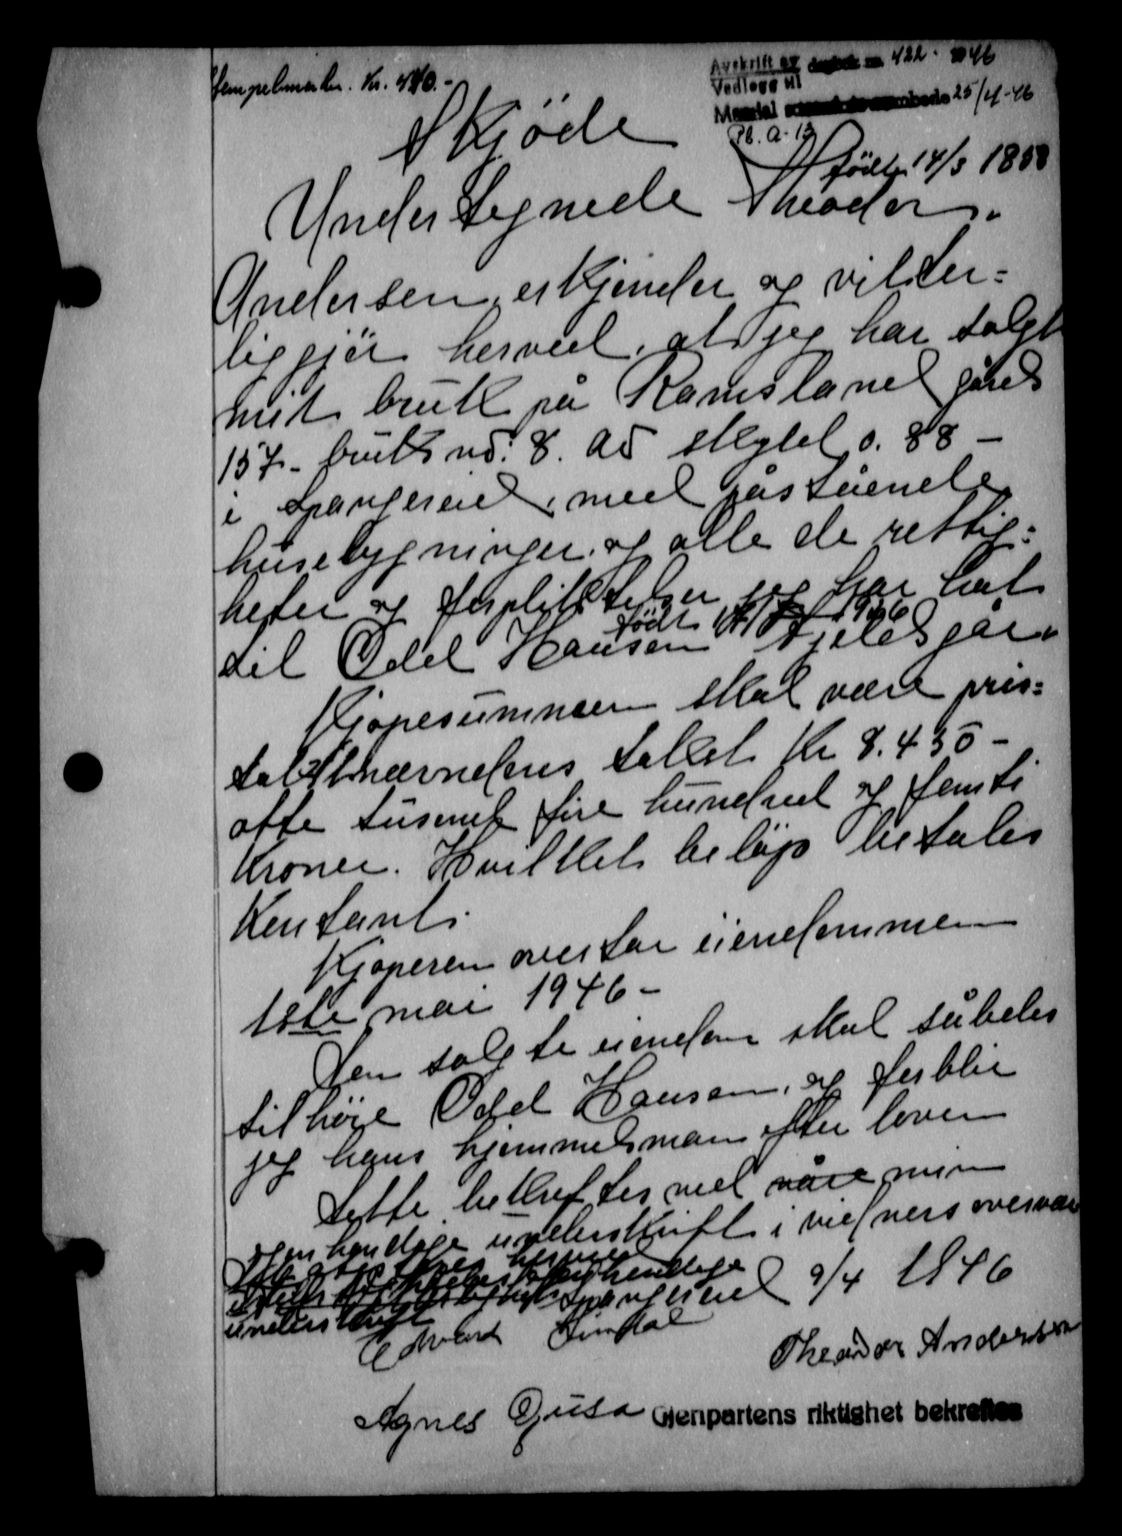 Stempelmerker. Kr. 440.-
Avskrift av dagbok nr. 422 - 1946
Vedlegg til
Mandal 25/4-46
Pb. A-13
Skjøde
født 14/3 1858
Undertegnede Theodor
Andersen, erkjender og vitter=
liggjör herved, at jeg har solgt
mit bruk på Ramsland gårds
157- bruks no. 8. av skyld 0.88 -
i Spangereid, med påstående
husebygninger, og alle de rettig=
heter og forpliktelser jeg har hat
født 1916
til Odd Hansen Gjeldsgår.
Kjøpesummen skal være pris=
takstnævndens takst Kr 8.450-
otte tusend fire hundred og femti
Kroner. Hvilket beløp betales
Kontant.
Kjøperen overtar eiendommen
1ste mai 1946-
Den solgte eiendom skal således
tilhøre Odd Hansen, og forblir
jeg hans hjemmelsman efter loven
Dette bekreftes med våre min
egenhendige underskrift i vidners overvær
egenhendige
underskrift
Spangereid 9/4 1946
Edvard
Theodor Andersen
Agnes Gusa
Gjenpartens riktighet bekreftes